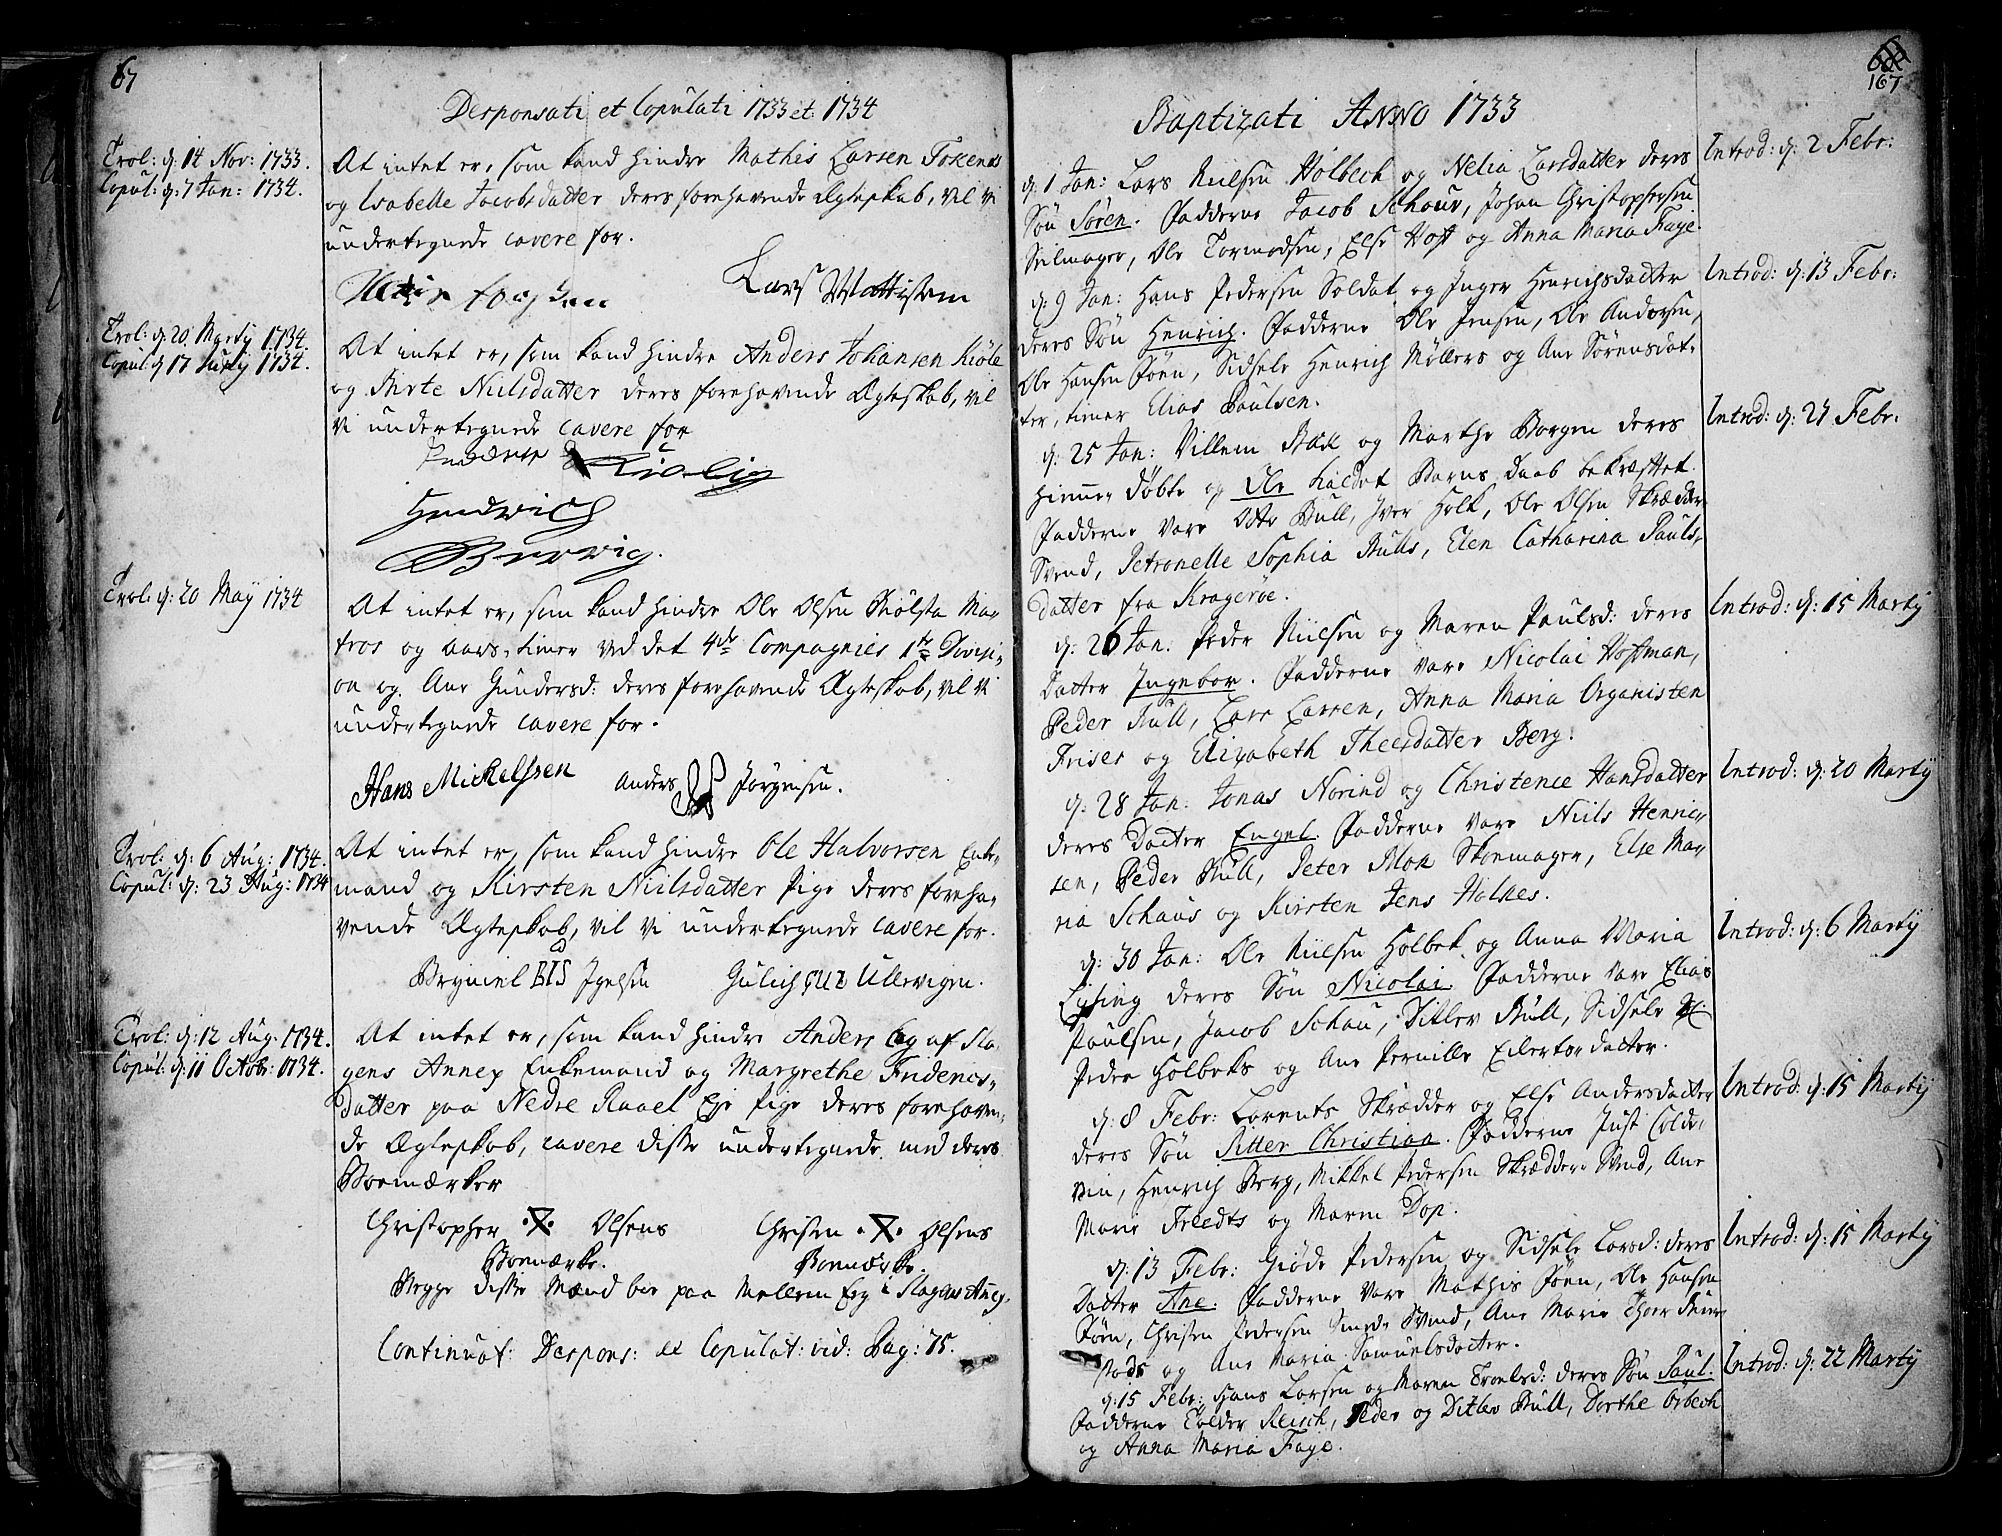 67
Desponsati et Copulati 1733 et 1734
Trol: d: 14 Nov: 1733.
Copul: d: 7 Jan: 1734.
At intet er, som kand hindre Mathis Larsen
og Isabelle Jacobsdatter deres forehavende Ægteskab, vil vi
undertegnede cavere for.
Lars Mattisen
Trol: d: 20 Martij 1734.
Copul: d 17 1734.
At intet er, som kand hindre Anders Johansen
og Birte Nielsdatter deres forehavende Ægteskab, vil
vi undertegnede cavere for
Hendrich
Trol: d: 20 Maij 1734
At intet er, som kand hindre Ole Olsen Ma-
tros og ved det 4de Compagnies 1te Divisi-
on og Ane Gundersd: deres forehavende Ægteskab, vil vi
undertegnede cavere for.
Hans Mickelssen Anders Jörgensen.
Trol: d: 6 Aug: 1734.
Copul: d: 23 Aug: 1734
At intet er, som kand hindre Ole Halvorsen Enke-
mand og Kirsten Nielsdatter Pige deres foreha-
vende Ægteskab, vil vi undertegnede cavere for.
Bryniel BIS
Trol: d: 12 Aug. 1734.
Copul: d: 11 Octobr: 1734.
At intet er, som kand hindre Anders Eeg af Sla-
gens Annex Enkemand og Margrethe Friderics-
datter paa Nedre Raael Eje Pige deres forehaven-
de Ægteskab, cavere disse undertegnede med deres
Boemærker
Christopher Olsens Christen Olsens
Boemærke. Boemærke.
Begge disse Mænd boe paa Mellem Eeg i Slagens Anex.
Continuat: Despons: et Copulat: vid: Pag: 75.
167
Baptizati Anno 1733
d: 1 Jan: Lars Nielsen Holbech og Nelia Larsdatter deres
Søn Søren. Fadderne Jacob Schour, Johan Christophersen
Seilmager, Ole Tormodsen, Else Hoff og Anna Maria Faye.
Introd: d: 2 Febr:
d: 9 Jan: Hans Pedersen Soldat og Inger Henrichsdatter
deres Søn Henrich. Fadderne Ole Jensen, Ole Andersen,
Ole Hansen Föen, Sidsele Henrich Møllers og Ane Sörensdat-
ter, tiener Elias Poulsen.
Introd: d: 13 Febr:
d: 25 Jan: Villem og Marthe Borgen deres
hiemme døbte og Ole kaldet Barns Daab bekræftet.
Fadderne vare Otte Bull, Iver Holk, Ole Olsen Skrædder
Svend, Petronelle Sophia Bulls, Elen Catharina Pauls-
datter fra Kragerøe.
Introd: d: 27 Febr:
d: 26 Jan: Peder Nielsen og Maren Paulsd: deres
Datter Ingebor. Fadderne vare Nicolai Hoffman,
Peder Bull, Lars Larsen, Anna Maria Organisten
Friser og Elizabeth Theesdatter Berg.
Introd: d: 15 Martij
d: 28 Jan: Jonas Norind og Christence Hansdatter
deres Datter Engel. Fadderne vare Niels Henric-
sen, Peder Bull, Peter Skoemager, Else Ma-
ria Schaus og Kirsten Jens Holkes.
Introd: d: 20 Martij
d: 30 Jan: Ole Nielsen Holbek og Anna Maria
Lysing deres Søn Nicolai. Fadderne vare Elias
Poulsen, Jacob Schau, Ditlev Bull, Sidsele
Peder Holbeks og Ane Pernille Eilertsdatter.
Introd: d: 6 Martij
d: 8 Febr: Lorents Skrædder og Else Andersdatter
deres Søn Petter Christian. Fadderne Just Colde-
vin, Henrich Berg, Mikkel Pedersen Skrædder Svend, Ane
Marie Freedts og Maren Dop.
Introd: d: 15 Martij
d: 13 Febr: Giöde Pedersen og Sidsele Larsd: deres
Datter Ane. Fadderne vare Mathis Föen, Ole Hansen
Föen, Christen Pedersen Smede Svend, Ane Marie Thoer
og Ane Maria Samuelsdatter.
Introd: d: 15 Martij
d: 15 Febr: Hans Larsen og Maren Troelsd: deres Søn Paul.
Fadderne Tolder Reisch, Peder og Ditlev Bull, Dorthe Orbech
og Anna Maria Faye.
Introd: d: 22 Martij